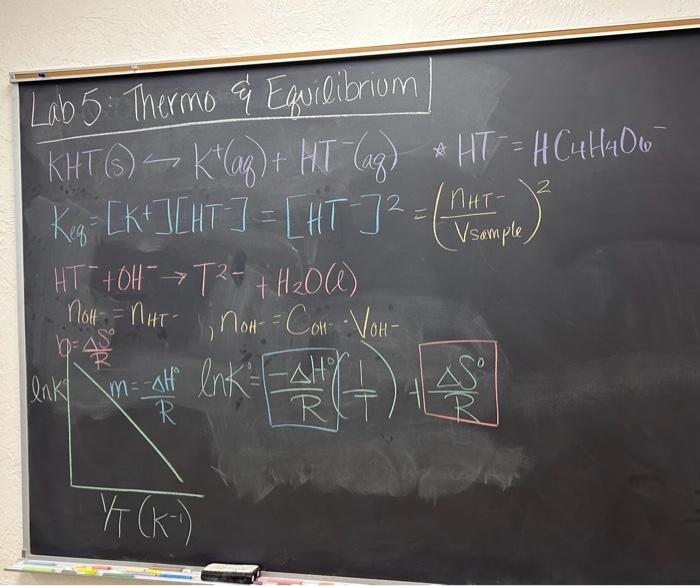 Lab 5: Thermo & Equilibrium
KHT(s) ↔ K⁺(aq) + HT⁻(aq) ☆ HT⁻ = HC₄H₄O₆⁻
Keq = [K⁺][HT⁻] = [HT⁻]² = (nHT⁻ / Vsample)²
HT⁻ + OH⁻ → T²⁻ + H₂O(l)
nOH⁻ = nHT⁻ , nOH⁻ = COH⁻ · VOH⁻
b = ΔS°/R
lnK° m = -ΔH°/R lnK° = -ΔH°/R (1/T) + ΔS°/R
1/T (K⁻¹)